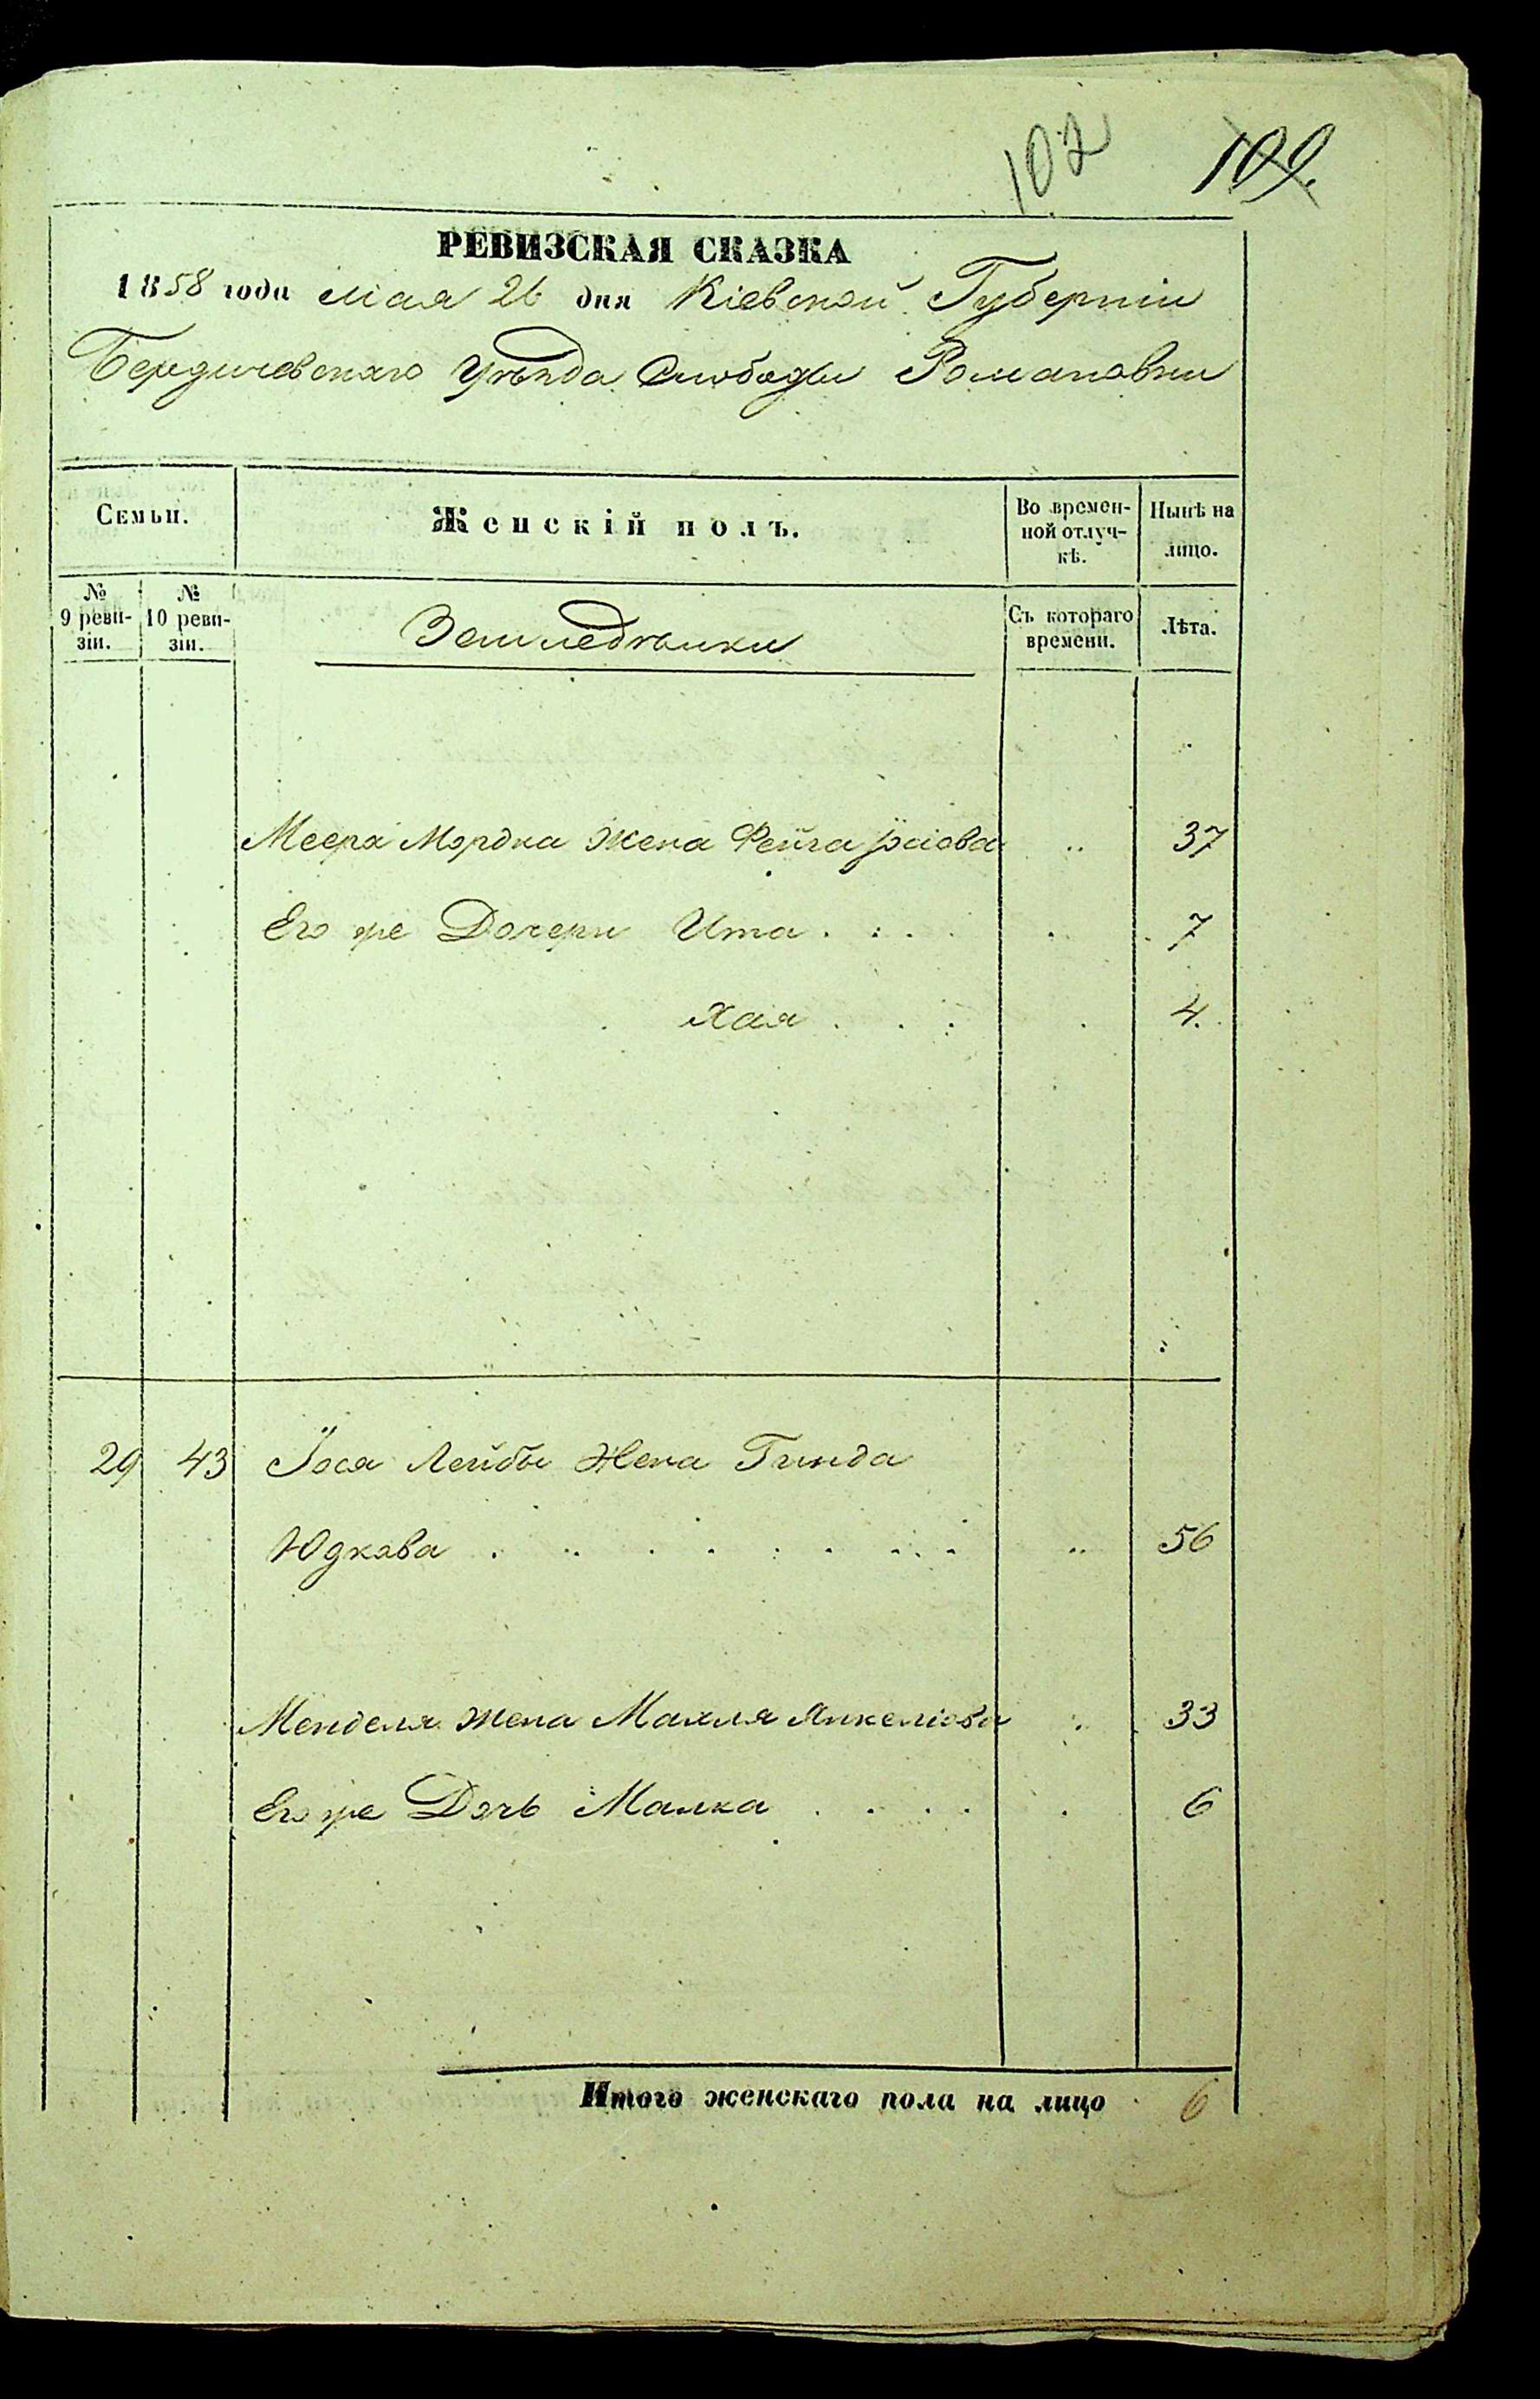 102 109.
РЕВИЗСКАЯ СКАЗКА
1858 года Мая 26 дня Кіевской Губерніи
Бердичевскаго Уѣзда Слободы Романовки
Семьи. Женскій полъ. Во времен-ной отлуч-кѣ. Нынѣ на лицо.
№ 9 реви-зіи. № 10 реви-зіи. Земледѣльки Съ котораго времени. Лѣта.
Меера Мордка Жена Фейга 37
Его же Дочери Ита 7
Хая 4.
29 43 Іося Лейбы Жена Гинда
Юдкова 56
Менделя Жена Махля Янкеліова 33
Его же Дочь Малка 6
Итого женскаго пола на лицо 6